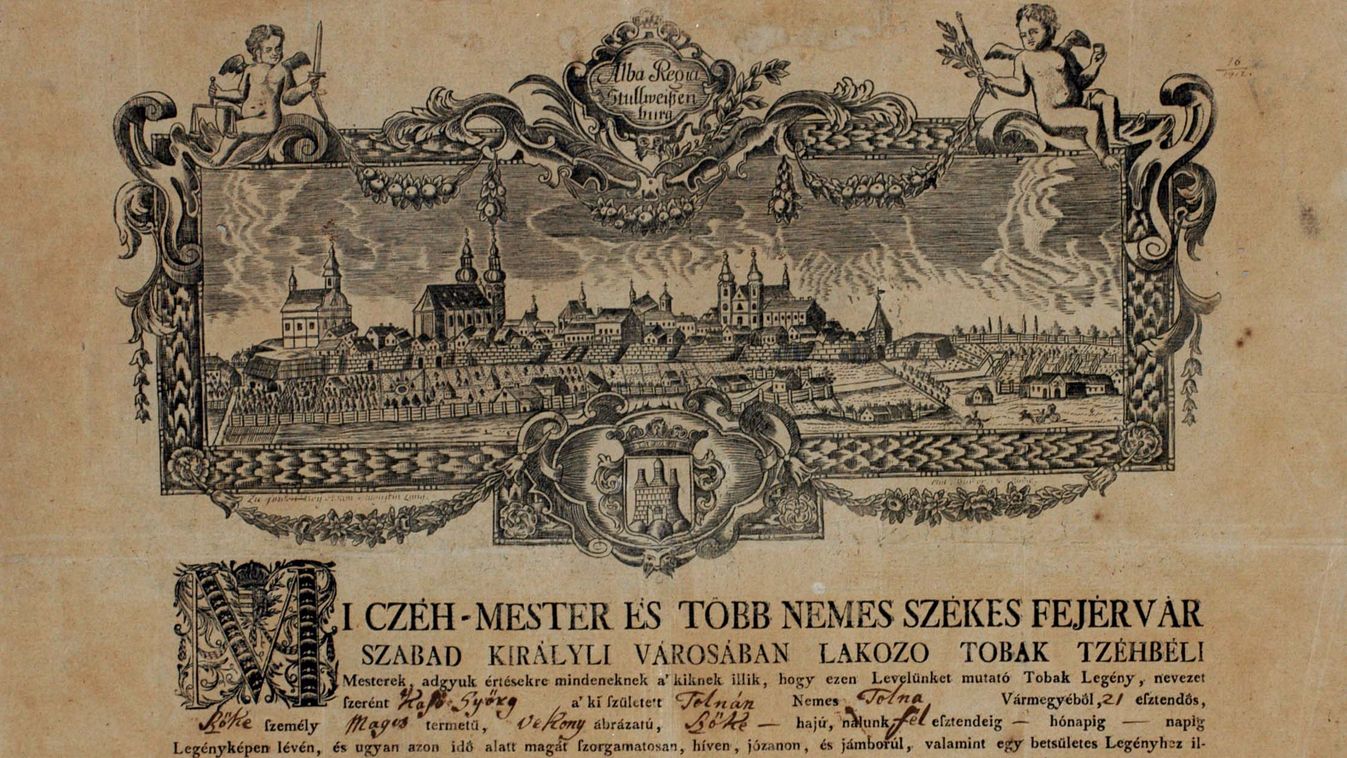 Alba Regia
Stullweißen
burg
16
1912.
MI CZÉH-MESTER ÉS TÖBB NEMES SZÉKES FEJÉRVÁR
SZABAD KIRÁLYLI VÁROSÁBAN LAKOZO TOBAK TZÉHBÉLI
Mesterek, adgyuk értésekre mindeneknek a' kiknek illik, hogy ezen Levelünket mutató Tobak Legény, nevezet
szerént György a' ki született Tolnán Nemes Tolna Vármegyéből, 21 esztendős,
Szőke személy Magos termetű, vékony ábrázatú, Szőke — hajú, nálunk fél esztendeig — hónapig — napig
Legényképen lévén, és ugyan azon idő alatt magát szorgamatosan, híven, józanon, és jámborúl, valamint egy betsületes Legényhez il-